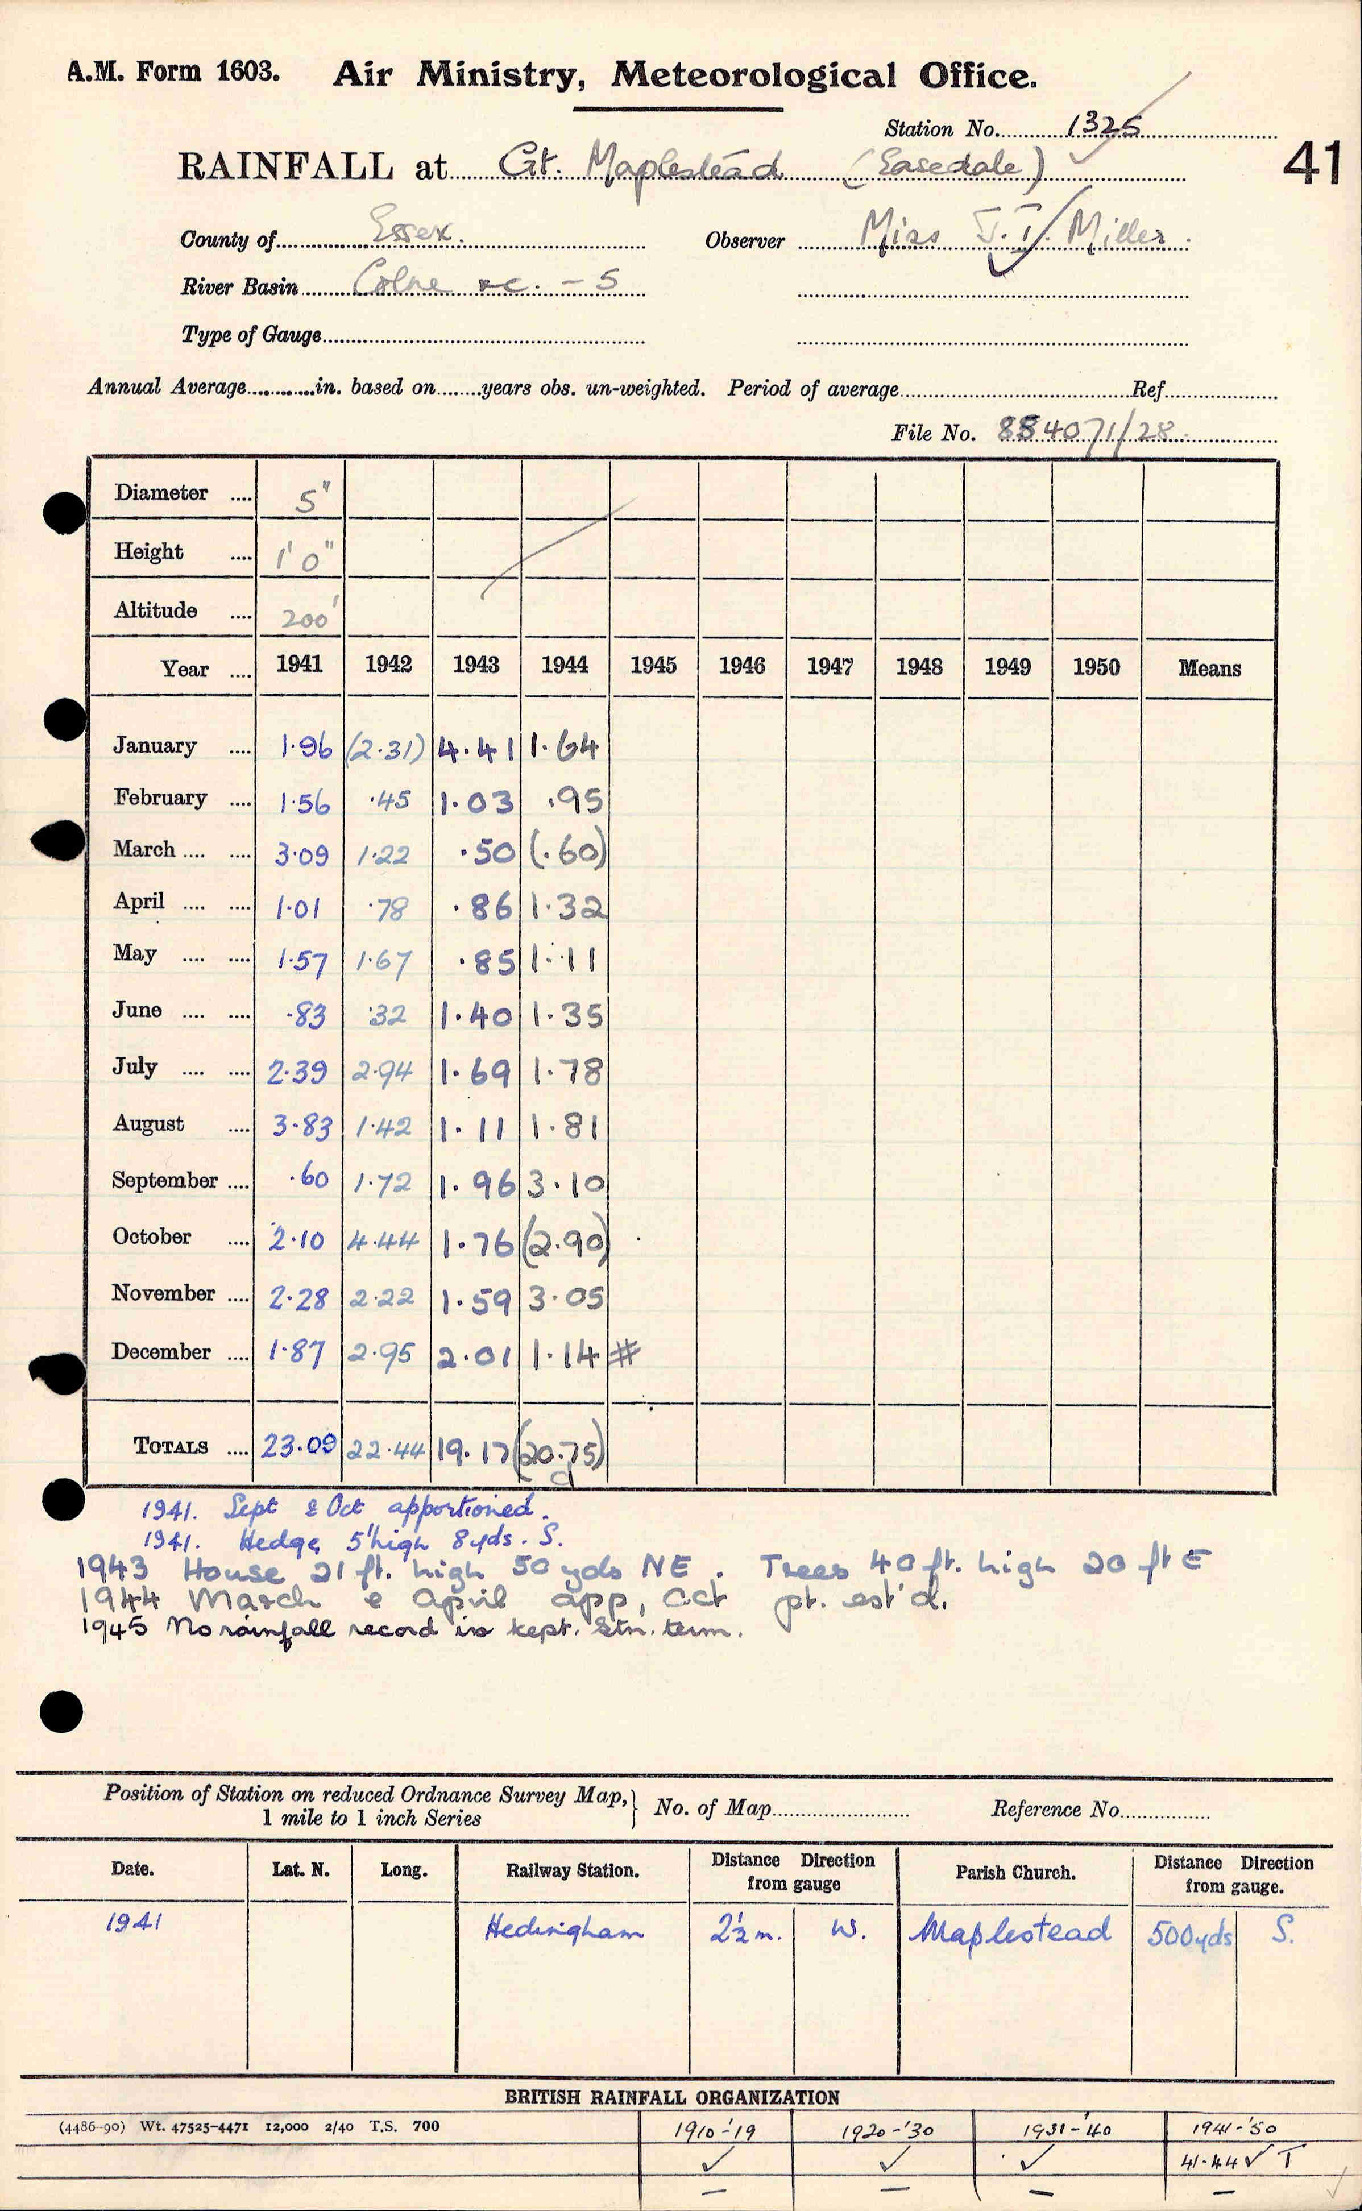 A.M. Form 1603. Air Ministry, Meteorological Office.
Station No. 1325
RAINFALL at Gt. Maplestead (Easedale) 41
County of Essex. Observer Miss J.I. Miller.
River Basin Colne &c. - 5
Type of Gauge
Annual Average in. based on years obs. un-weighted. Period of average Ref.
File No. 884071/28
Diameter .... 5"
Height .... 1' 0"
Altitude .... 200'
Year .... 1941 1942 1943 1944 1945 1946 1947 1948 1949 1950 Means
January .... 1.96 (2.31) 4.41 1.64
February .... 1.56 .45 1.03 .95
March .... .... 3.09 1.22 .50 (.60)
April .... .... 1.01 .78 .86 1.32
May .... .... 1.57 1.67 .85 1.11
June .... .... .83 .32 1.40 1.35
July .... .... 2.39 2.94 1.69 1.78
August .... 3.83 1.42 1.11 1.81
September .... .60 1.72 1.96 3.10
October .... 2.10 4.44 1.76 (2.90)
November .... 2.28 2.22 1.59 3.05
December .... 1.87 2.95 2.01 1.14 #
TOTALS .... 23.09 22.44 19.17 (20.75)
1941. Sept & Oct apportioned.
1941. Hedge 5' high 8 yds. S.
1943 House 21 ft. high 50 yds NE. Trees 40 ft. high 20 ft E
1944 March & April app, Oct pt. est'd.
1945 No rainfall record is kept. Stn. term.
Position of Station on reduced Ordnance Survey Map, 1 mile to 1 inch Series } No. of Map Reference No.
Date. Lat. N. Long. Railway Station. Distance Direction from gauge Parish Church. Distance Direction from gauge.
1941 Hedingham 2½ m. W. Maplestead 500 yds S.
BRITISH RAINFALL ORGANIZATION
(4486-90) Wt. 47525-4471 12,000 2/40 T.S. 700 1910-'19 1920-'30 1931-'40 1941-'50
✓ ✓ ✓ 41-44 ✓ T
— — — —